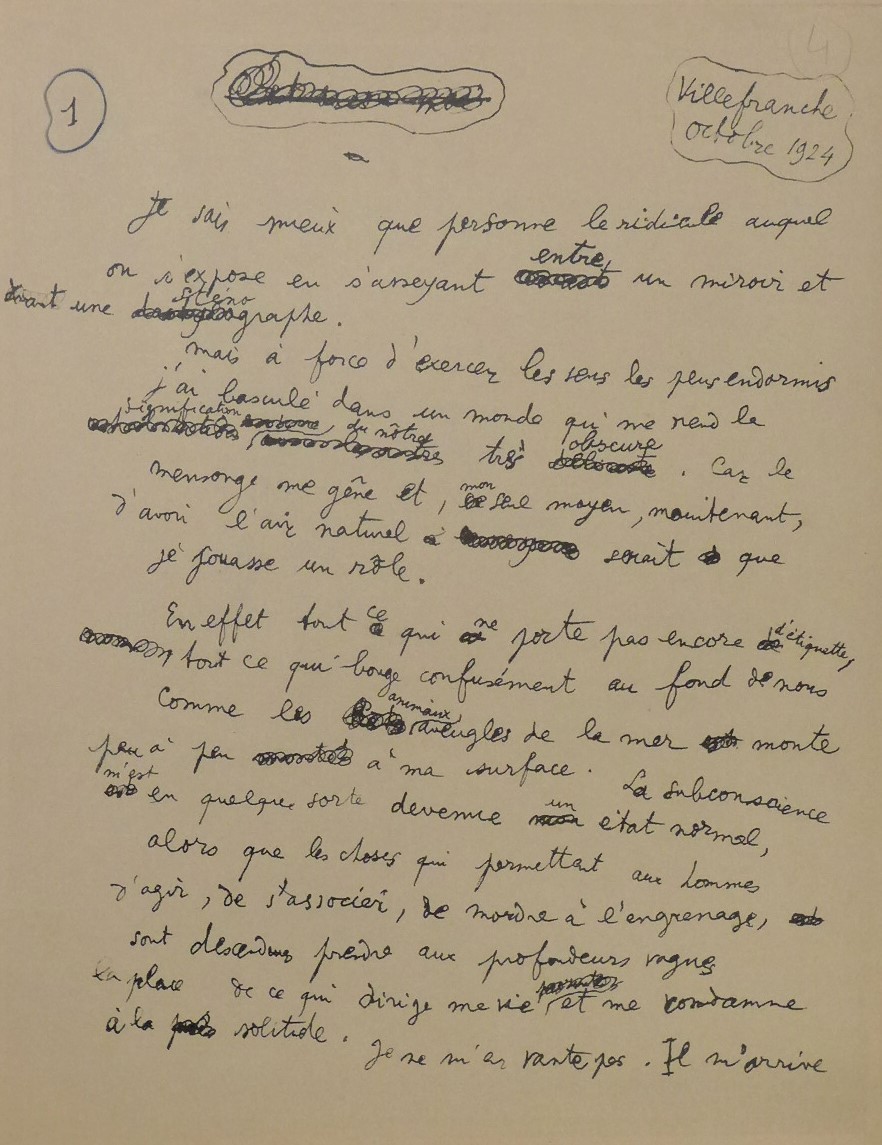 4
1
Villefranche
octobre 1924
Je sais mieux que personne le ridicule auquel
entre
on s'expose en s'asseyant un miroir et
sténo
devant une graphe.
mais à force d'exercer les sens les plus endormis
j'ai basculé dans un monde qui me rend la
signification du nôtre très obscure. Car le
mensonge me gêne et, mon seul moyen, maintenant,
d'avoir l'air naturel serait que
je jouasse un rôle.
En effet tout ce qui ne porte pas encore d'étiquette,
tout ce qui bouge confusément au fond de nous
comme les animaux aveugles de la mer monte
peu à peu à ma surface. La subconscience
m'est en quelque sorte devenue un état normal,
alors que les choses qui permettant aux hommes
d'agir, de s'associer, de mordre à l'engrenage,
sont descendues prendre aux profondeurs vagues
la place de ce qui dirige me vie et me condamne
à la solitude.
Je ne m'en vante pas. Il m'arrive